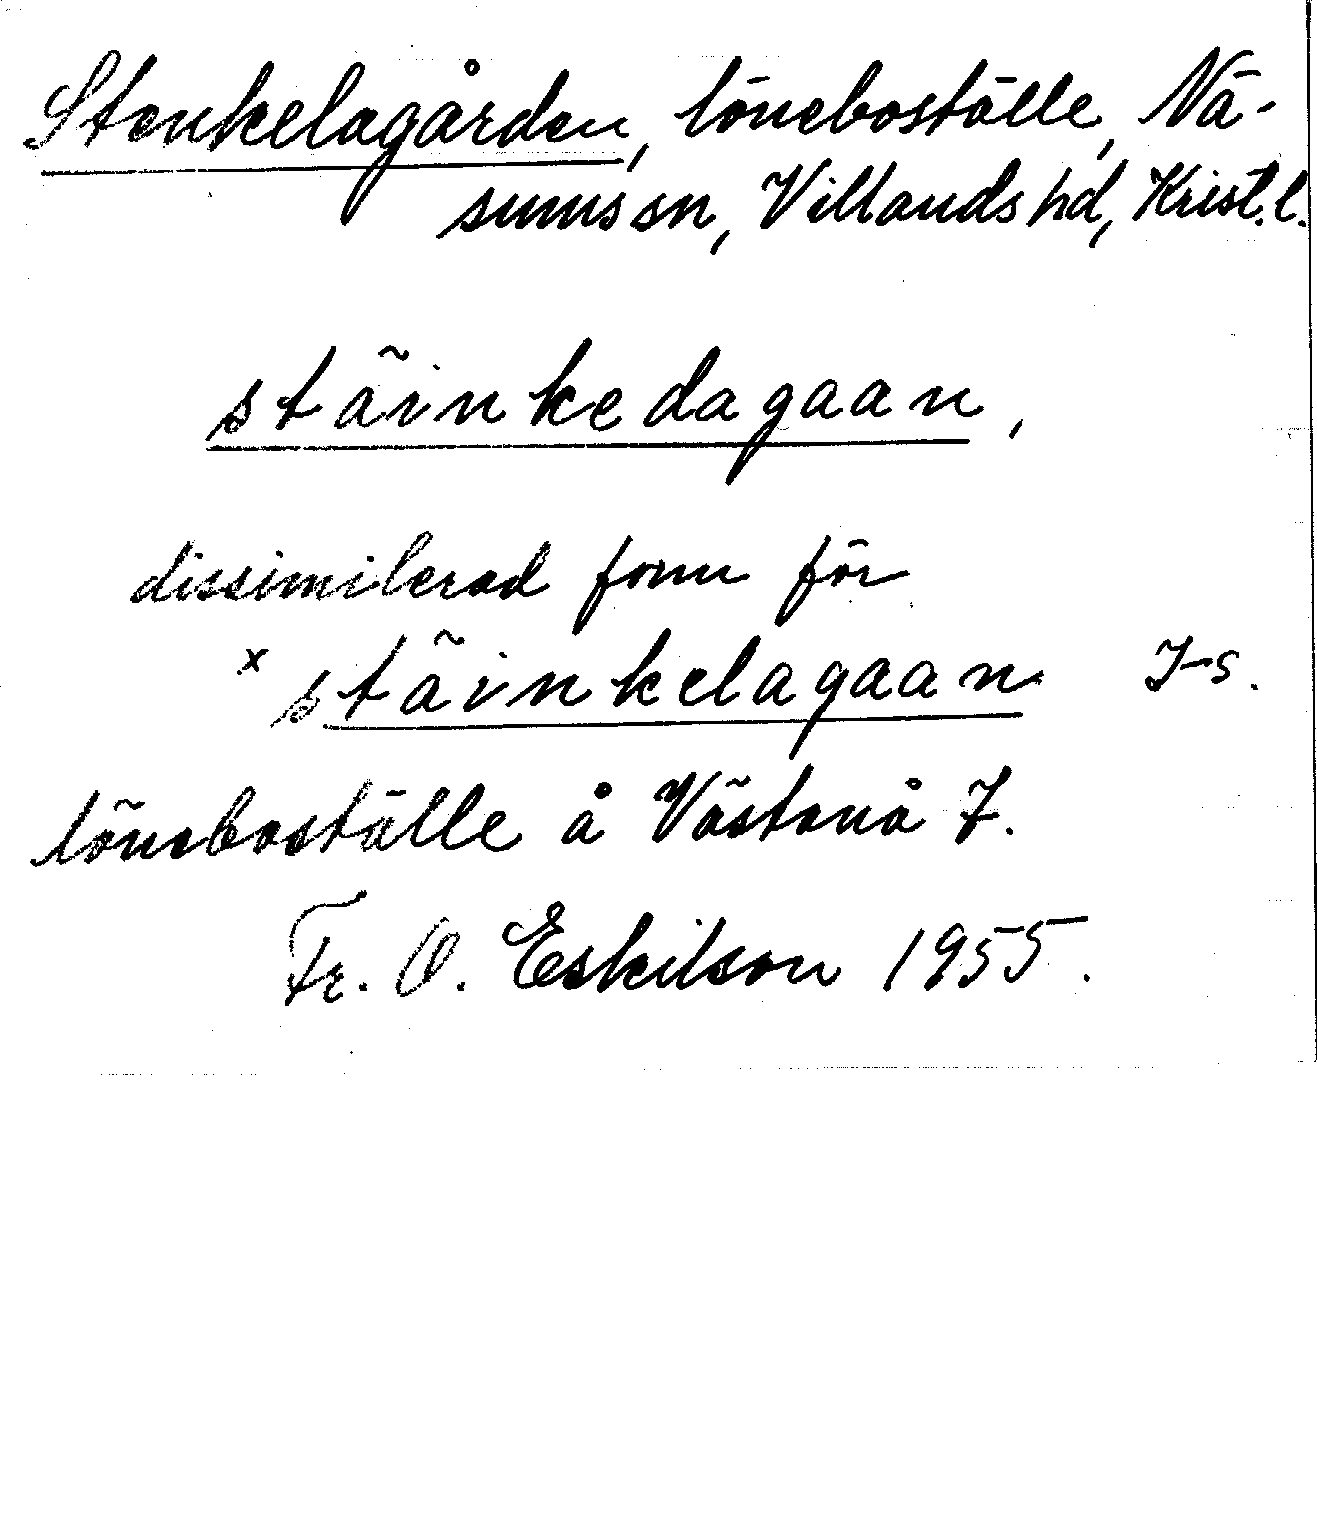 Stenkelagården, löneboställe, Nä-
sums sn, Villands hd, Krist. l.
stäinkedagaan,
dissimilerad form för
x stäinkelagaan. J-s.
löneboställe å Västanå 7.
Fr. O. Eskilson 1955.